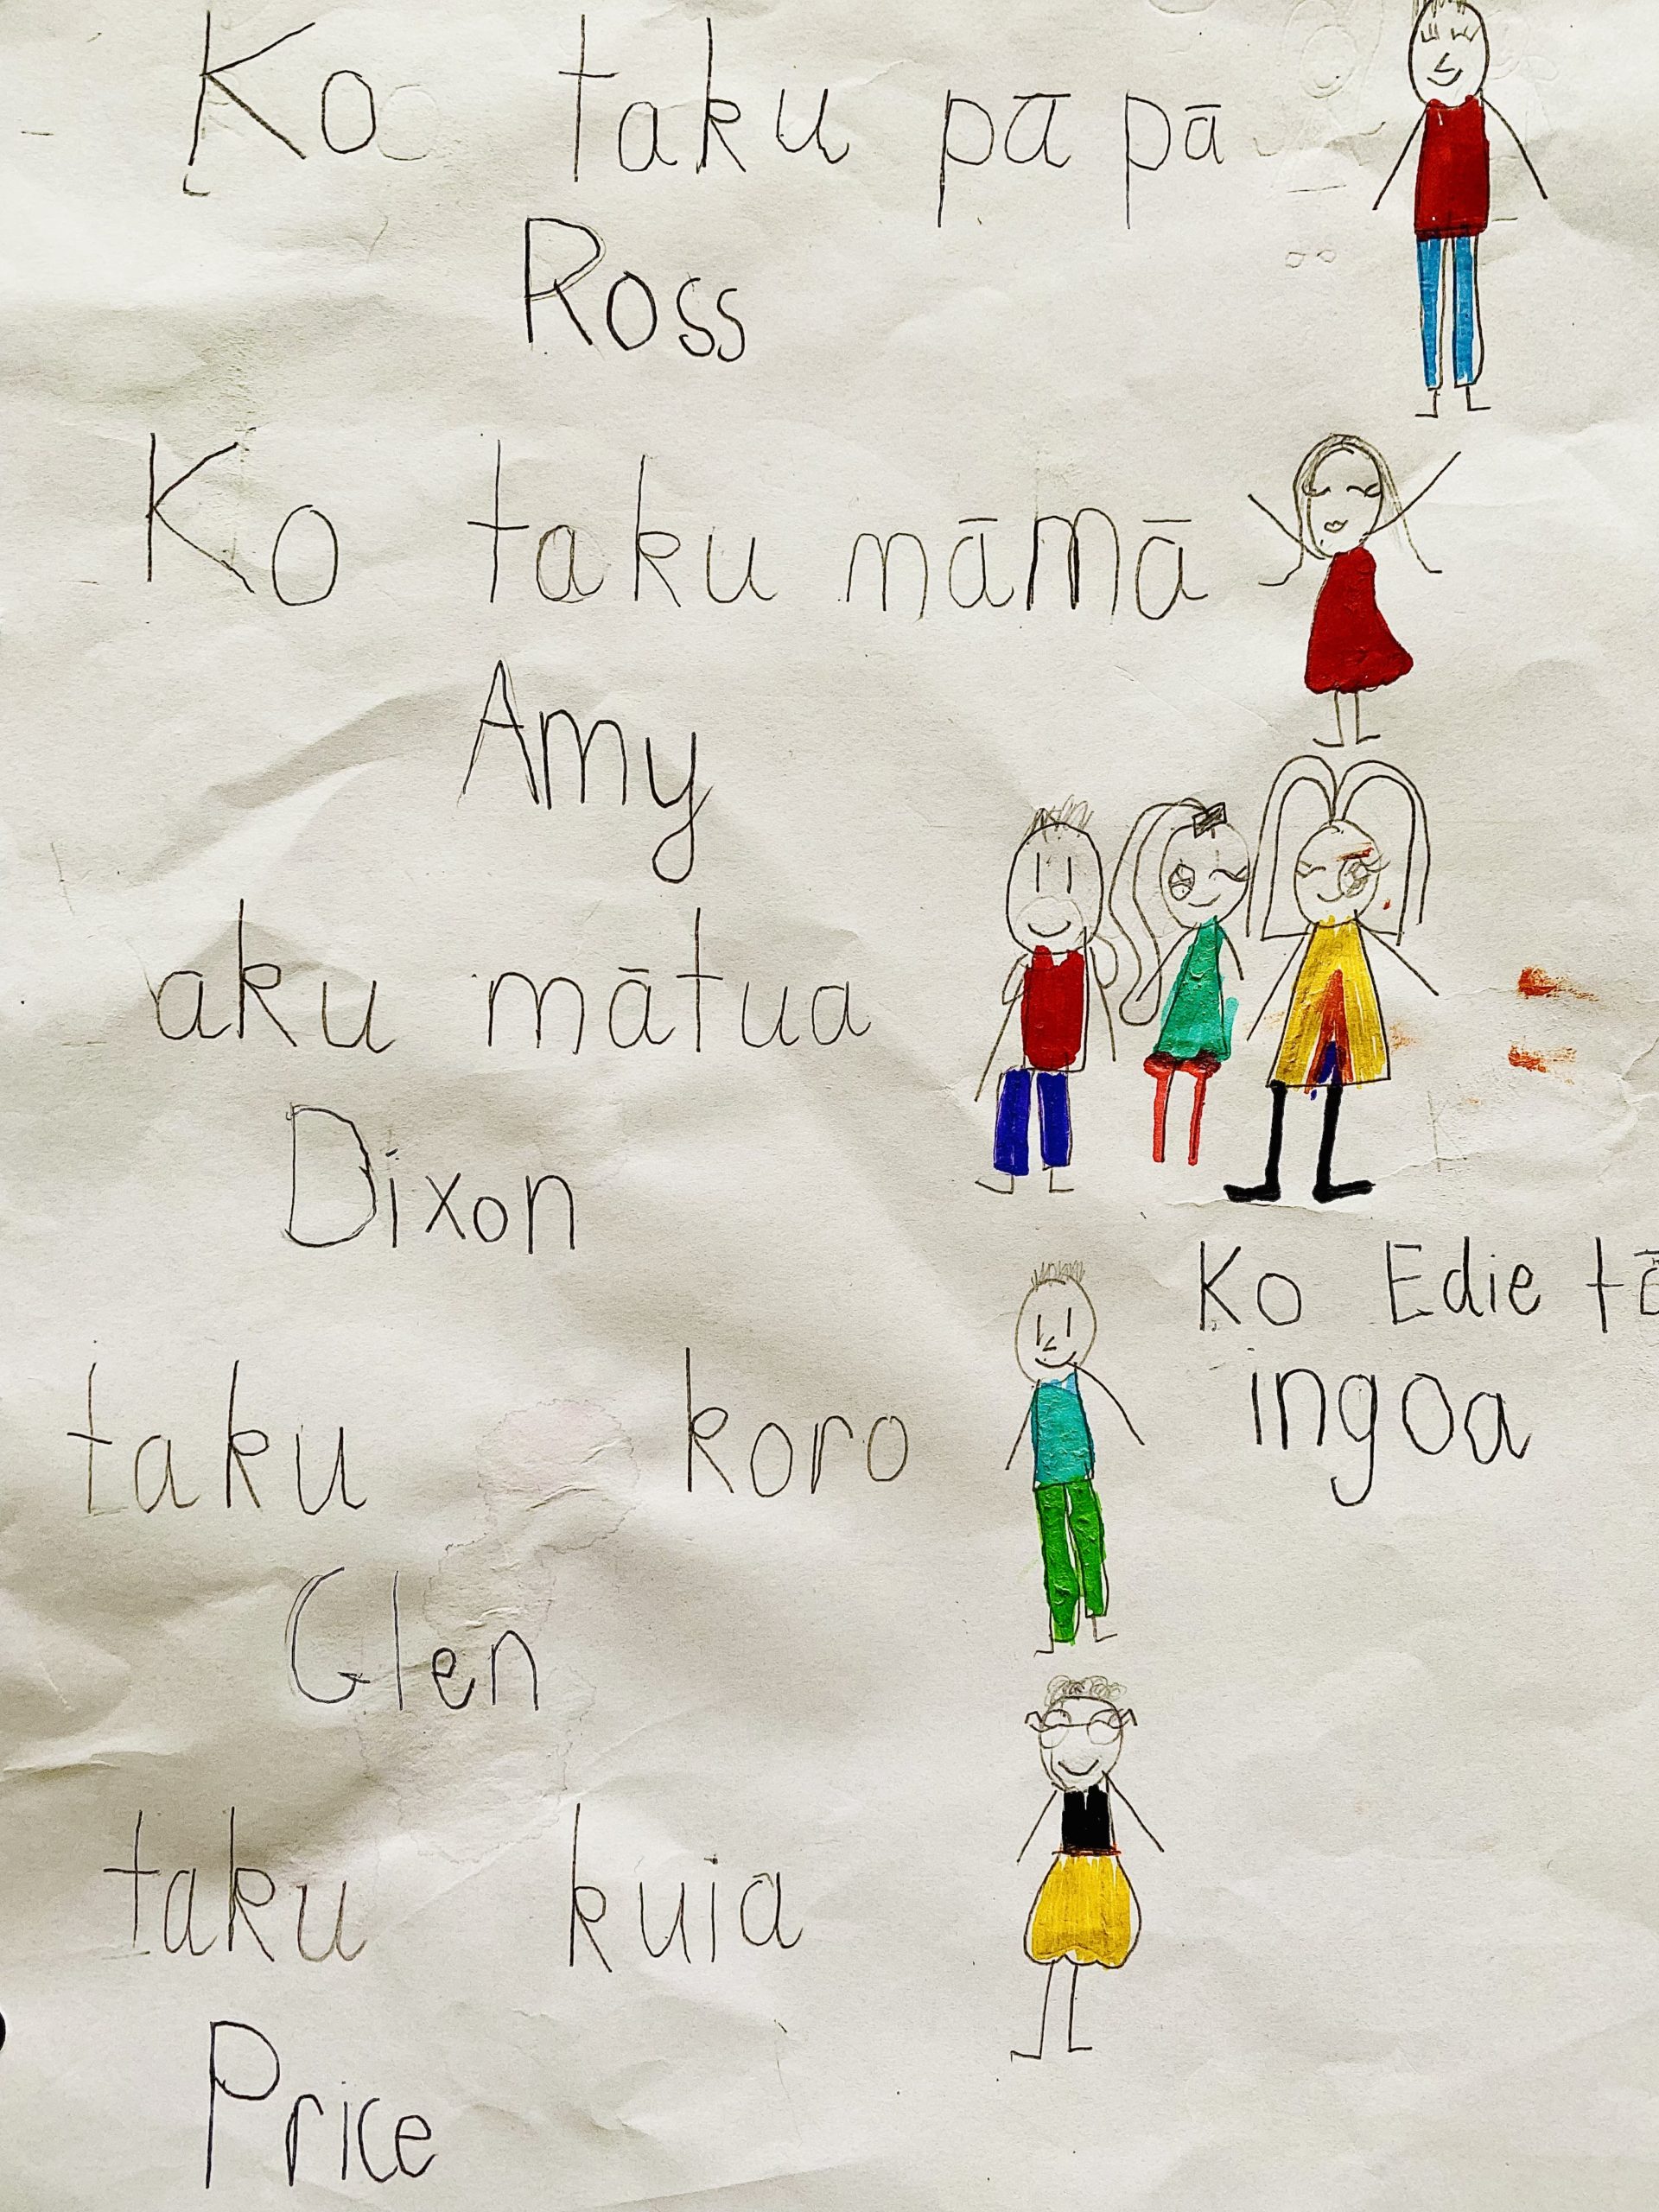 Ko taku pāpā
Ross
Ko taku māmā
Amy
aku mātua
Dixon
taku koro
Glen
taku kuia
Price
Ko Edie
ingoa